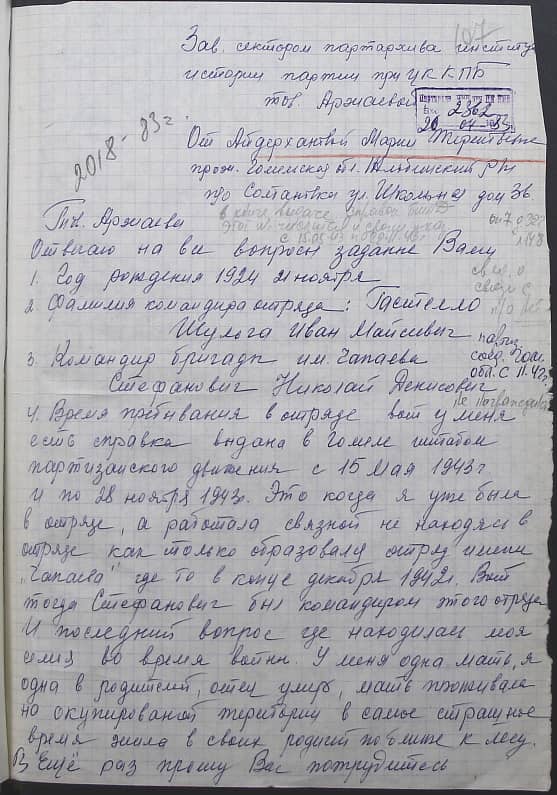 107
Зав. сектором партархива института
истории партии при ЦК КПБ
тов. Аржаевой
2362
20 04 83
2018-83г.
От Айдерхановой Марии Терентьевне
прож. Гомельской обл. р-н
п/о Солтановка ул. Школьная дом 36.
Тов. Аржаева
в книге выдачи справок
Отвечаю на все вопросы заданне Вами
1. Год рождения 1924 21 ноября
2. Фамилия командира отряда: Гастелло
Шулога Иван Мойсевич
3. Командир бригады им. Чапаева
соед. Гом.
обл. с 11.42г.
Стефанович Николай Денисович
не награждалась
4. Время пребывания в отряде вот у меня
есть справка выдана в Гомеле штабом
партизанского движения с 15 Мая 1943г
и по 28 ноября 1943г. Это когда я уже была
в отряде, а работала связной не находясь в
отряде как только образовался отряд имени
"Чапаева" где то в конце декабря 1942г. Вот
тогда Стефанович был командиром этого отряда
И последний вопрос где находилась моя
семья во время войны. У меня одна мать, я
одна в родителей, отец умер, мать проживала
на окупированой територии в самое страшное
время жила в своих родных по ближе к лесу.
Ещё раз прошу Вас потрудитесь